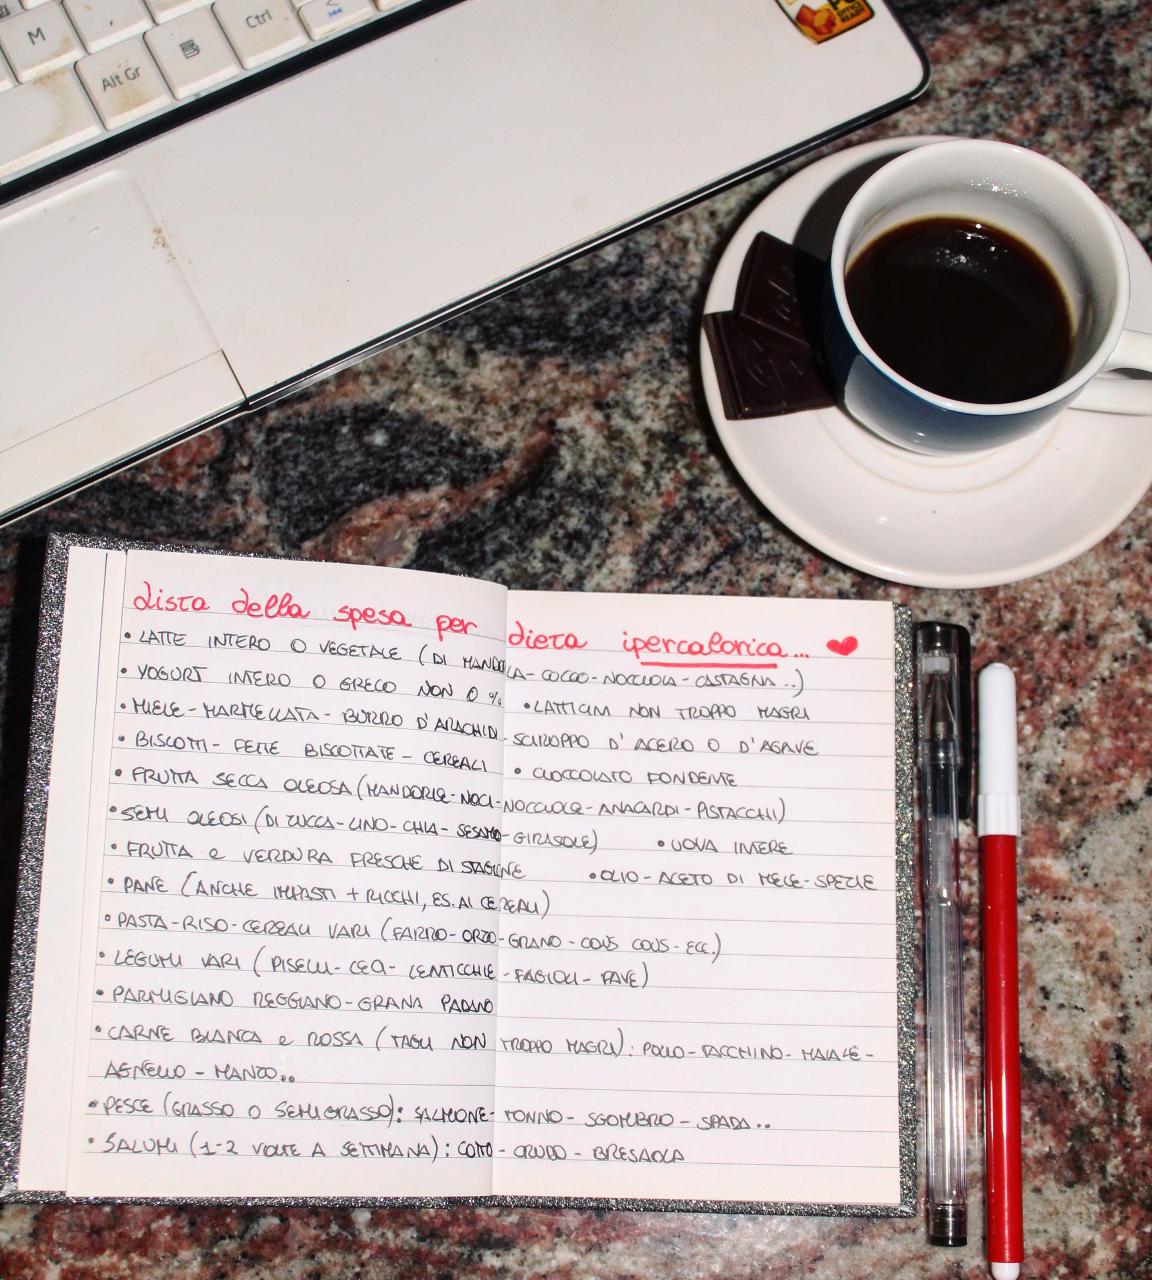 M
,
Alt Gr
Ctrl
<
OFFICE
READY
Lista della spesa per dieta ipercalorica... ♥
• LATTE INTERO O VEGETALE (DI MANDORLA - COCCO - NOCCIOLA - CASTAGNA..)
• YOGURT INTERO O GRECO NON 0 % • LATTICINI NON TROPPO MAGRI
• MIELE - MARMELLATA - BURRO D'ARACHIDI - SCIROPPO D'ACERO O D'AGAVE
• BISCOTTI - FETTE BISCOTTATE - CEREALI • CIOCCOLATO FONDENTE
• FRUTTA SECCA OLEOSA (MANDORLE - NOCI - NOCCIOLE - ANACARDI - PISTACCHI)
• SEMI OLEOSI (DI ZUCCA - LINO - CHIA - SESAMO - GIRASOLE) • UOVA INTERE
• FRUTTA E VERDURA FRESCHE DI STAGIONE • OLIO - ACETO DI MELE - SPEZIE
• PANE (ANCHE IMPASTI + RICCHI, ES. AI CEREALI)
• PASTA - RISO - CEREALI VARI (FARRO - ORZO - GRANO - COUS COUS - ECC.)
• LEGUMI VARI (PISELLI - CECI - LENTICCHIE - FAGIOLI - FAVE)
• PARMIGIANO REGGIANO - GRANA PADANO
• CARNE BIANCA E ROSSA (TAGLI NON TROPPO MAGRI): POLLO - TACCHINO - MAIALE -
AGNELLO - MANZO..
• PESCE (GRASSO O SEMIGRASSO): SALMONE - TONNO - SGOMBRO - SPADA..
• SALUMI (1-2 VOLTE A SETTIMANA): COTTO - CRUDO - BRESAOLA